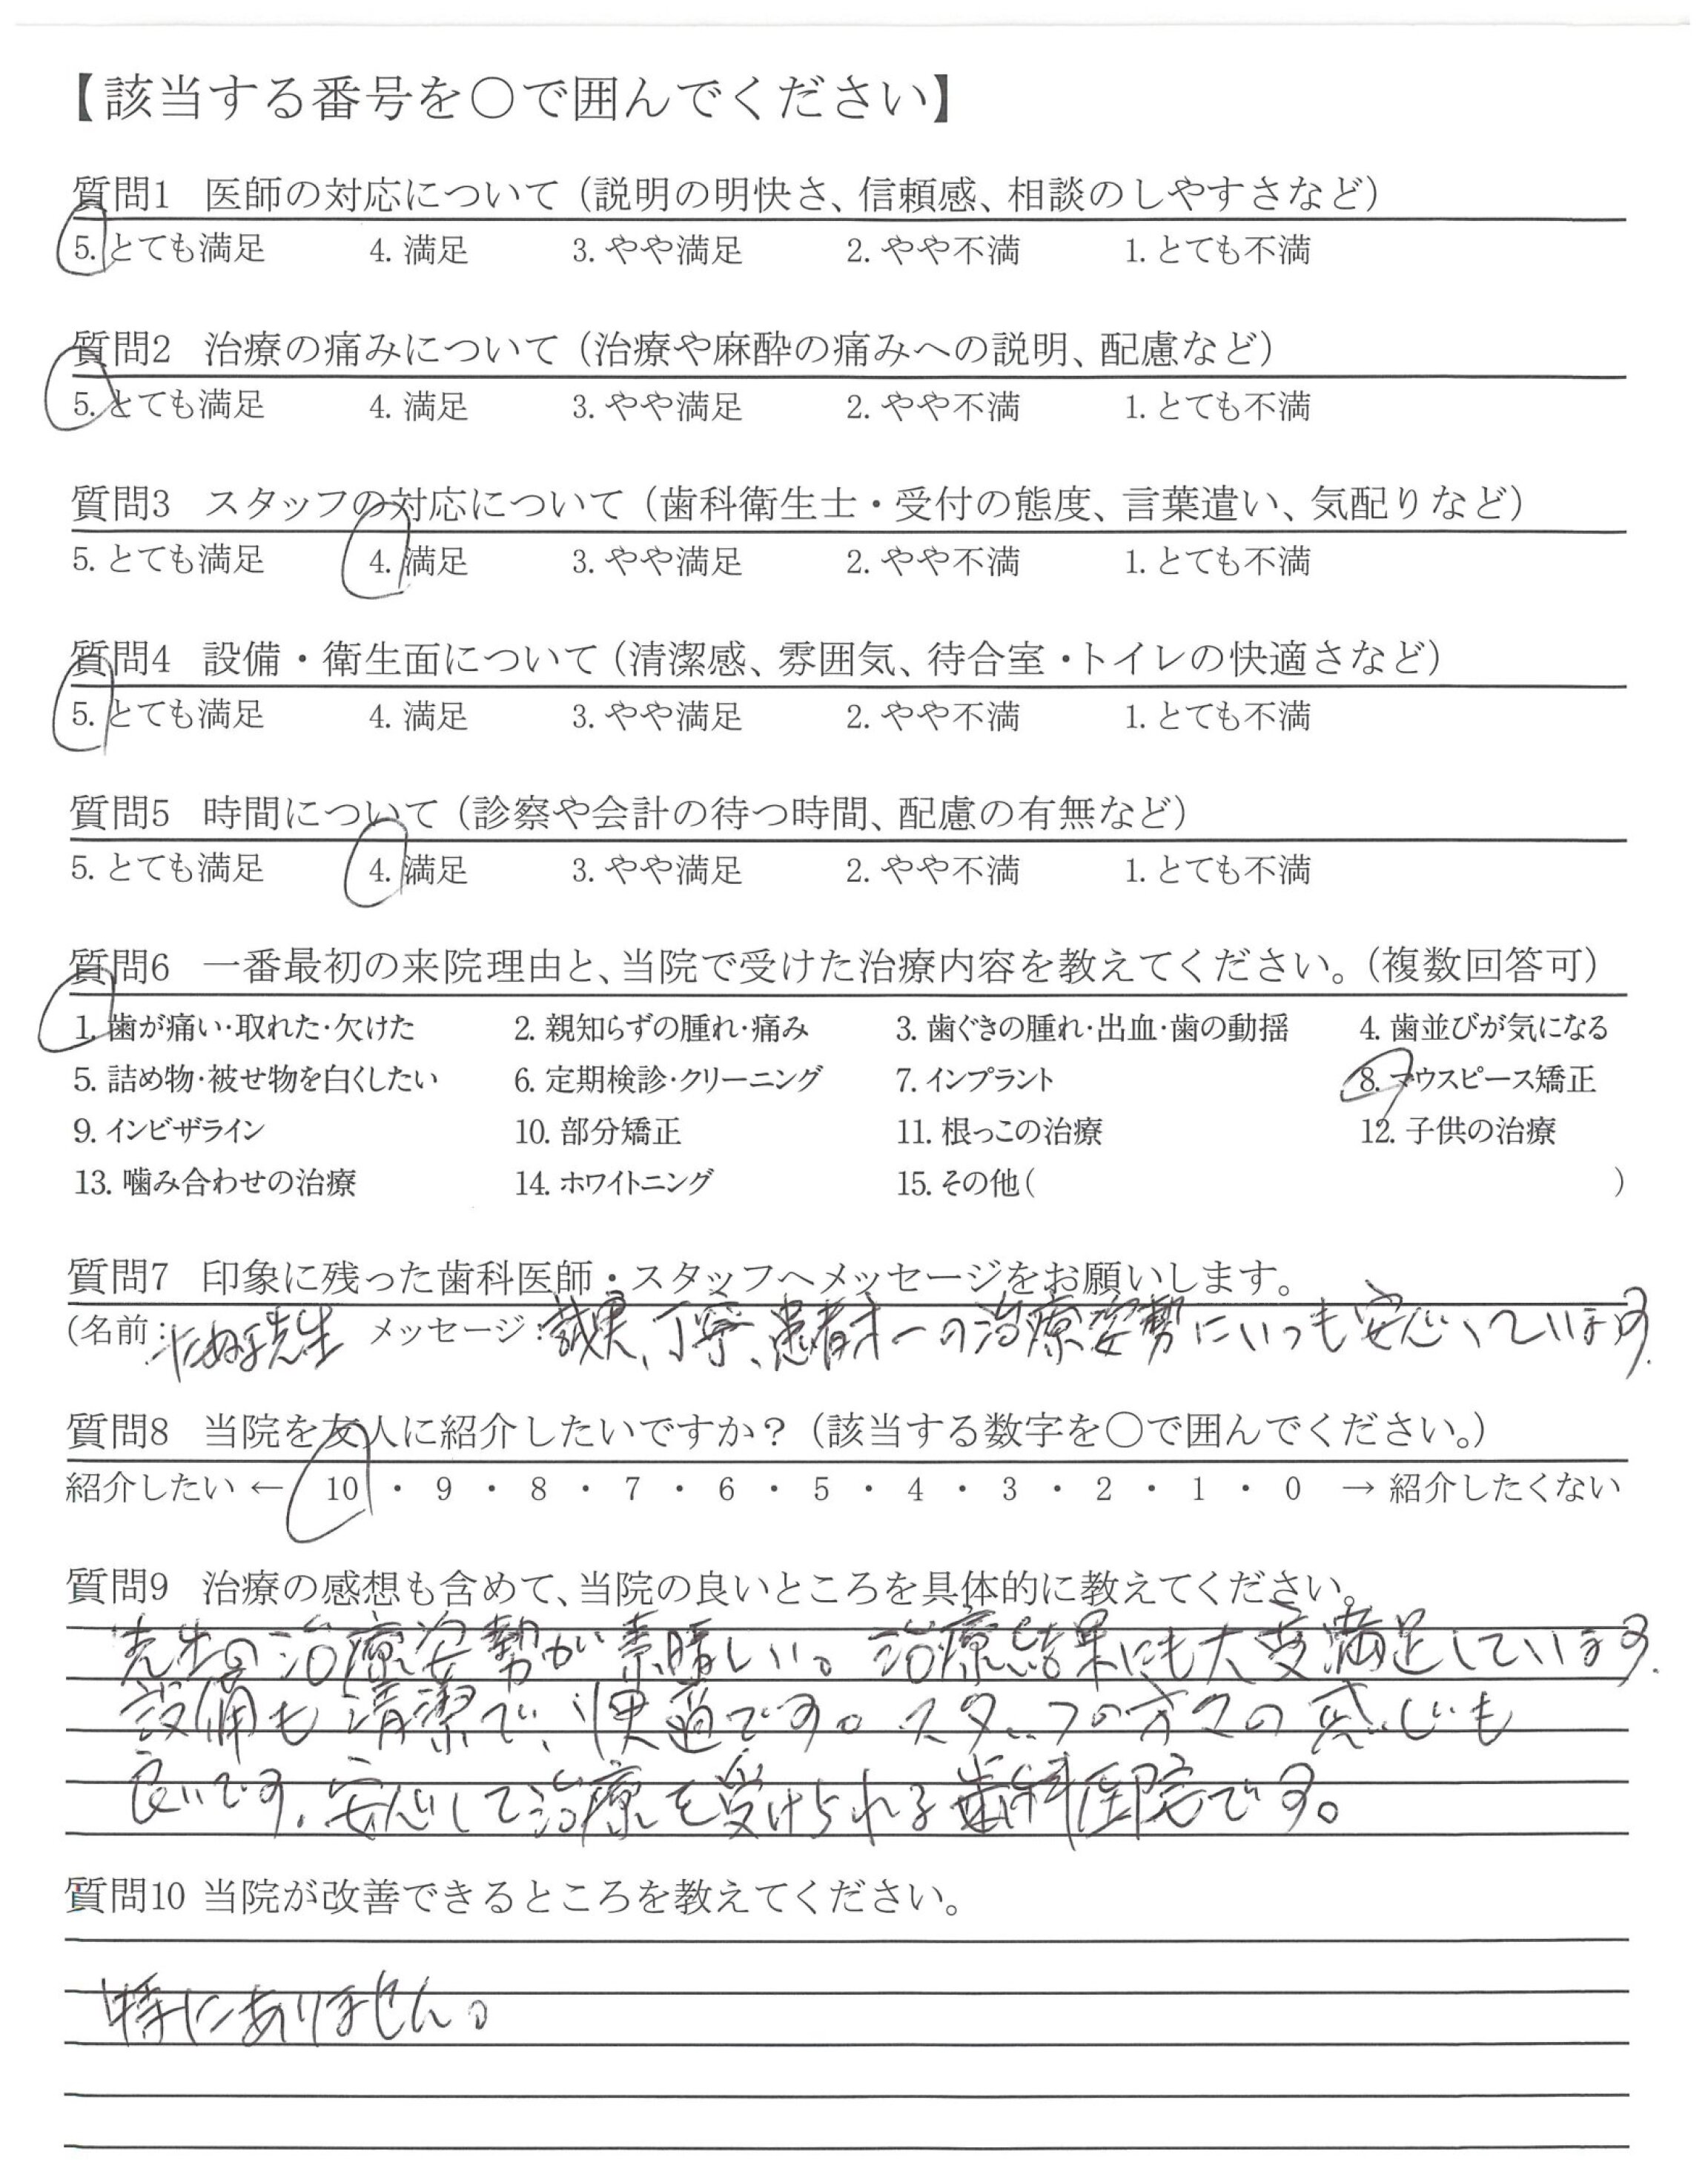 【該当する番号を〇で囲んでください】
質問1 医師の対応について（説明の明快さ、信頼感、相談のしやすさなど）
5. とても満足 4. 満足 3. やや満足 2. やや不満 1. とても不満
質問2 治療の痛みについて（治療や麻酔の痛みへの説明、配慮など）
5. とても満足 4. 満足 3. やや満足 2. やや不満 1. とても不満
質問3 スタッフの対応について（歯科衛生士・受付の態度、言葉遣い、気配りなど）
5. とても満足 4. 満足 3. やや満足 2. やや不満 1. とても不満
質問4 設備・衛生面について（清潔感、雰囲気、待合室・トイレの快適さなど）
5. とても満足 4. 満足 3. やや満足 2. やや不満 1. とても不満
質問5 時間について（診察や会計の待つ時間、配慮の有無など）
5. とても満足 4. 満足 3. やや満足 2. やや不満 1. とても不満
質問6 一番最初の来院理由と、当院で受けた治療内容を教えてください。（複数回答可）
1. 歯が痛い・取れた・欠けた 2. 親知らずの腫れ・痛み 3. 歯ぐきの腫れ・出血・歯の動揺 4. 歯並びが気になる
5. 詰め物・被せ物を白くしたい 6. 定期検診・クリーニング 7. インプラント 8. マウスピース矯正
9. インビザライン 10. 部分矯正 11. 根っこの治療 12. 子供の治療
13. 噛み合わせの治療 14. ホワイトニング 15. その他（ ）
質問7 印象に残った歯科医師・スタッフへメッセージをお願いします。
（名前： 先生 メッセージ：誠実、丁寧、患者オーの治療姿勢にいつも安心しています。
質問8 当院を友人に紹介したいですか？（該当する数字を〇で囲んでください。）
紹介したい ← 10 ・ 9 ・ 8 ・ 7 ・ 6 ・ 5 ・ 4 ・ 3 ・ 2 ・ 1 ・ 0 → 紹介したくない
質問9 治療の感想も含めて、当院の良いところを具体的に教えてください。
先生の治療姿勢が素晴しい。治療結果にも大変満足しています。
設備も清潔で、快適です。スタッフの方々の感じも
良いです。安心して治療を受けられる歯科医院です。
質問10 当院が改善できるところを教えてください。
特にありません。